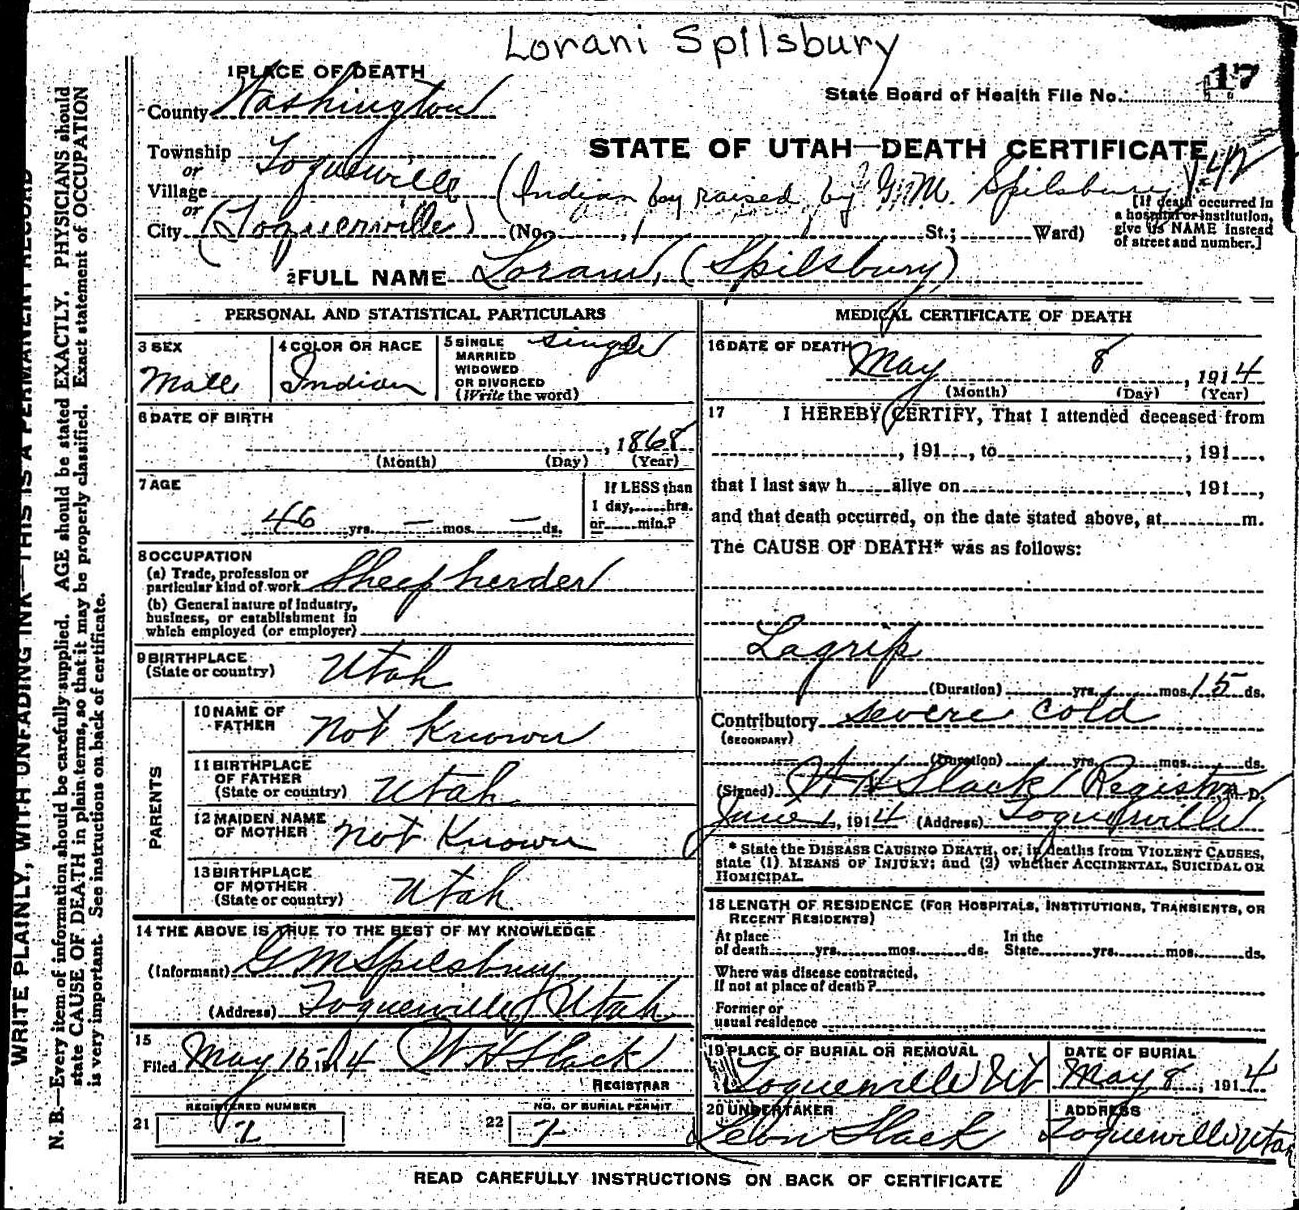 Lorani Spilsbury
1 PLACE OF DEATH
17
State Board of Health File No.
County Washington
STATE OF UTAH—DEATH CERTIFICATE
Township Toquerville
or
Village (Indian boy raised by G.M. Spilsbury)
or
City (Toquerville) (No. St.; Ward) [If death occurred in a hospital or institution, give its NAME instead of street and number.]
2 FULL NAME Lorani, (Spilsbury)
PERSONAL AND STATISTICAL PARTICULARS
3 SEX Male
4 COLOR OR RACE Indian
5 SINGLE MARRIED WIDOWED OR DIVORCED (Write the word) single
6 DATE OF BIRTH
, 1868
(Month) (Day) (Year)
7 AGE
46 yrs. — mos. — ds.
If LESS than 1 day, hrs. or min.?
8 OCCUPATION
(a) Trade, profession or particular kind of work Sheep herder
(b) General nature of Industry, business, or establishment in which employed (or employer)
9 BIRTHPLACE
(State or country) Utah
PARENTS
10 NAME OF FATHER Not Known
11 BIRTHPLACE OF FATHER (State or country) Utah
12 MAIDEN NAME OF MOTHER Not Known
13 BIRTHPLACE OF MOTHER (State or country) Utah
14 THE ABOVE IS TRUE TO THE BEST OF MY KNOWLEDGE
(Informant) G M Spilsbury
(Address) Toquerville Utah
15
Filed May 15 1914 W H Slack
REGISTRAR
REGISTERED NUMBER
21 2
NO. OF BURIAL PERMIT
22 2
MEDICAL CERTIFICATE OF DEATH
16 DATE OF DEATH
May 8, 1914
(Month) (Day) (Year)
17 I HEREBY CERTIFY, That I attended deceased from
, 191 , to , 191 ,
that I last saw h alive on , 191 ,
and that death occurred, on the date stated above, at m.
The CAUSE OF DEATH* was as follows:
Lagrip
(Duration) yrs. mos. 15 ds.
Contributory severe cold
(SECONDARY)
(Duration) yrs. mos. ds.
(Signed) W H Slack Registrar M.D.
June 1, 1914 (Address) Toquerville
* State the DISEASE CAUSING DEATH, or, in deaths from VIOLENT CAUSES,
state (1) MEANS OF INJURY; and (2) whether ACCIDENTAL, SUICIDAL OR
HOMICIDAL.
18 LENGTH OF RESIDENCE (FOR HOSPITALS, INSTITUTIONS, TRANSIENTS, OR
RECENT RESIDENTS)
At place of death yrs. mos. ds. In the State yrs. mos. ds.
Where was disease contracted,
If not at place of death?
Former or
usual residence
19 PLACE OF BURIAL OR REMOVAL
Toquerville Ut
DATE OF BURIAL
May 8, 1914
20 UNDERTAKER
Slack
ADDRESS
Toquerville Utah
READ CAREFULLY INSTRUCTIONS ON BACK OF CERTIFICATE
WRITE PLAINLY, WITH UNFADING INK—THIS IS A PERMANENT RECORD
N. B.—Every item of information should be carefully supplied. AGE should be stated EXACTLY. PHYSICIANS should
state CAUSE OF DEATH in plain terms, so that it may be properly classified. Exact statement of OCCUPATION
is very important. See instructions on back of certificate.